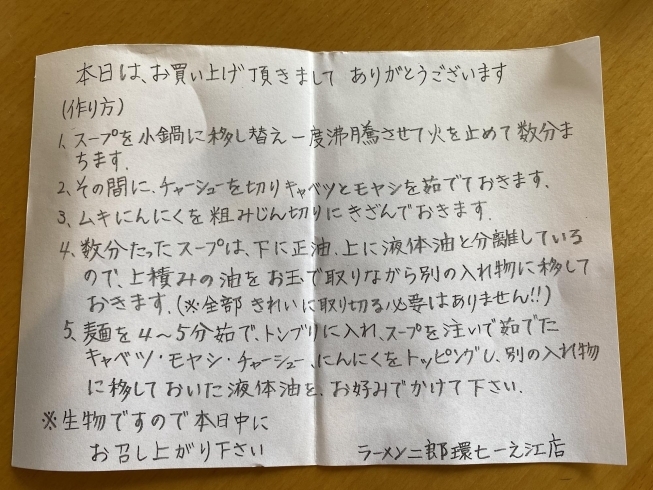 本日は、お買い上げ頂きまして ありがとうございます
(作り方)
1、スープを小鍋に移し替え一度沸騰させて火を止めて数分ま
ちます。
2、その間に、チャーシューを切りキャベツとモヤシを茹でておきます、
3、ムキにんにくを粗みじん切りにきざんでおきます。
4、数分たったスープは、下に正油、上に液体油と分離している
ので、上積みの油をお玉で取りながら別の入れ物に移して
おきます。(※全部 きれいに取り切る必要はありません!!)
5、麺を4～5分茹で、トンブリに入れ、スープを注いで茹でた
キャベツ・モヤシ・チャーシュー、にんにくをトッピングし、別の入れ物
に移しておいた液体油を、お好みでかけて下さい.
※生物ですので本日中に
お召し上がり下さい
ラーメン二郎環七一之江店